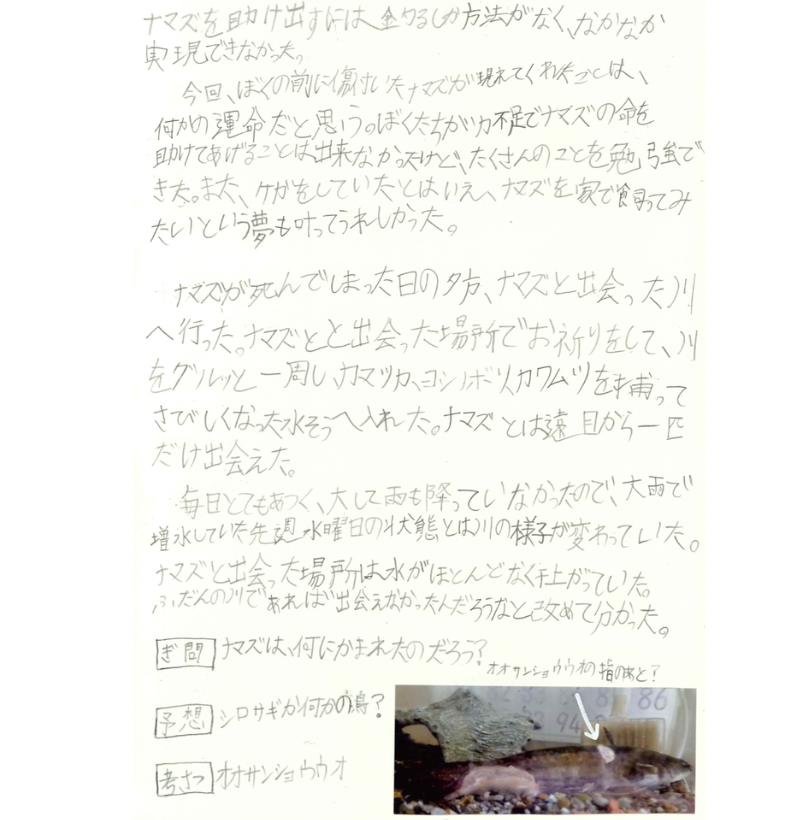 ナマズを助け出すには金づるしか方法がなく、なかなか
実現できなかった。
今回、ぼくの前に傷付いたナマズが現れてくれたことは、
何かの運命だと思う。ぼくたちが力不足でナマズの命を
助けてあげることは出来なかったけど、たくさんのことを勉強で
きた。また、ケガをしていたとはいえ、ナマズを家で飼ってみ
たいという夢も叶ってうれしかった。
ナマズが死んでしまった日の夕方、ナマズと出会った川
へ行った。ナマズとと出会った場所でお祈りをして、川
をグルッと一周し、カマツカ、ヨシノボリ、カワムツを捕って
さびしくなった水そうへ入れた。ナマズとは遠目から一匹
だけ出会えた。
毎日とてもあつく、大して雨も降っていなかったので、大雨で
増水していた先週水曜日の状態とは川の様子が変わっていた。
ナマズと出会った場所は水がほとんどなく干上がっていた。
ふだんの川であれば出会えなかったんだろうなと改めて分かった。
ぎ問 ナマズは、何にかまれたのだろう?
オオサンショウウオの指のあと?
予想 シロサギか何かの鳥?
考さつ オオサンショウウオ
86
94